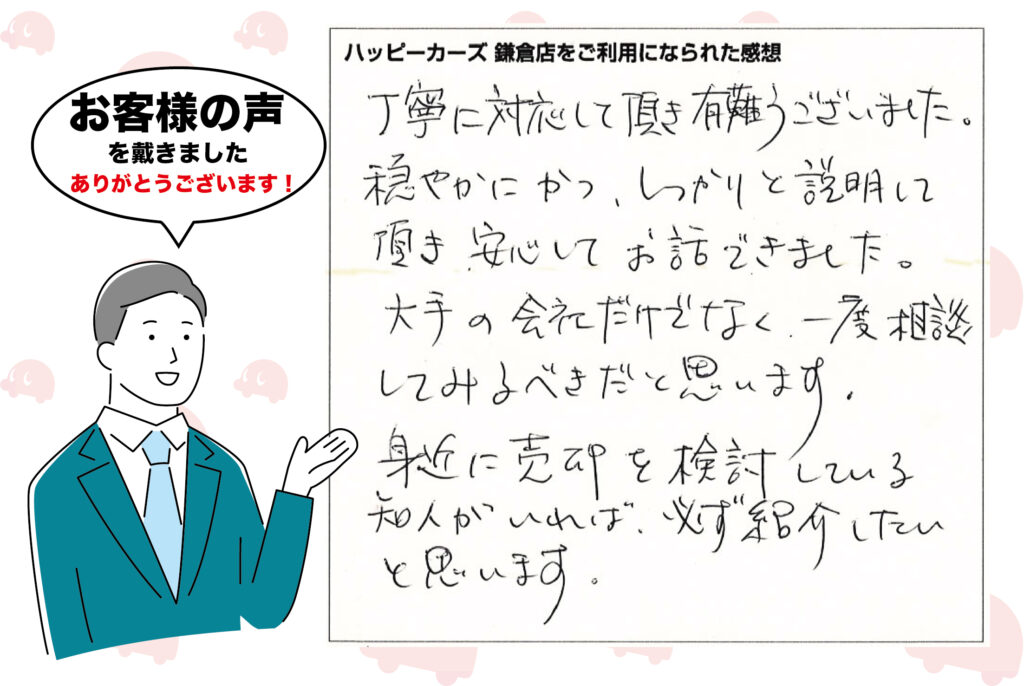 お客様の声
を戴きました
ありがとうございます！
ハッピーカーズ 鎌倉店をご利用になられた感想
丁寧に対応して頂き有難うございました。
穏やかにかつ、しっかりと説明して
頂き、安心してお話できました。
大手の会社だけでなく、一度相談
してみるべきだと思います。
身近に売却を検討している
知人がいれば、必ず紹介したい
と思います。